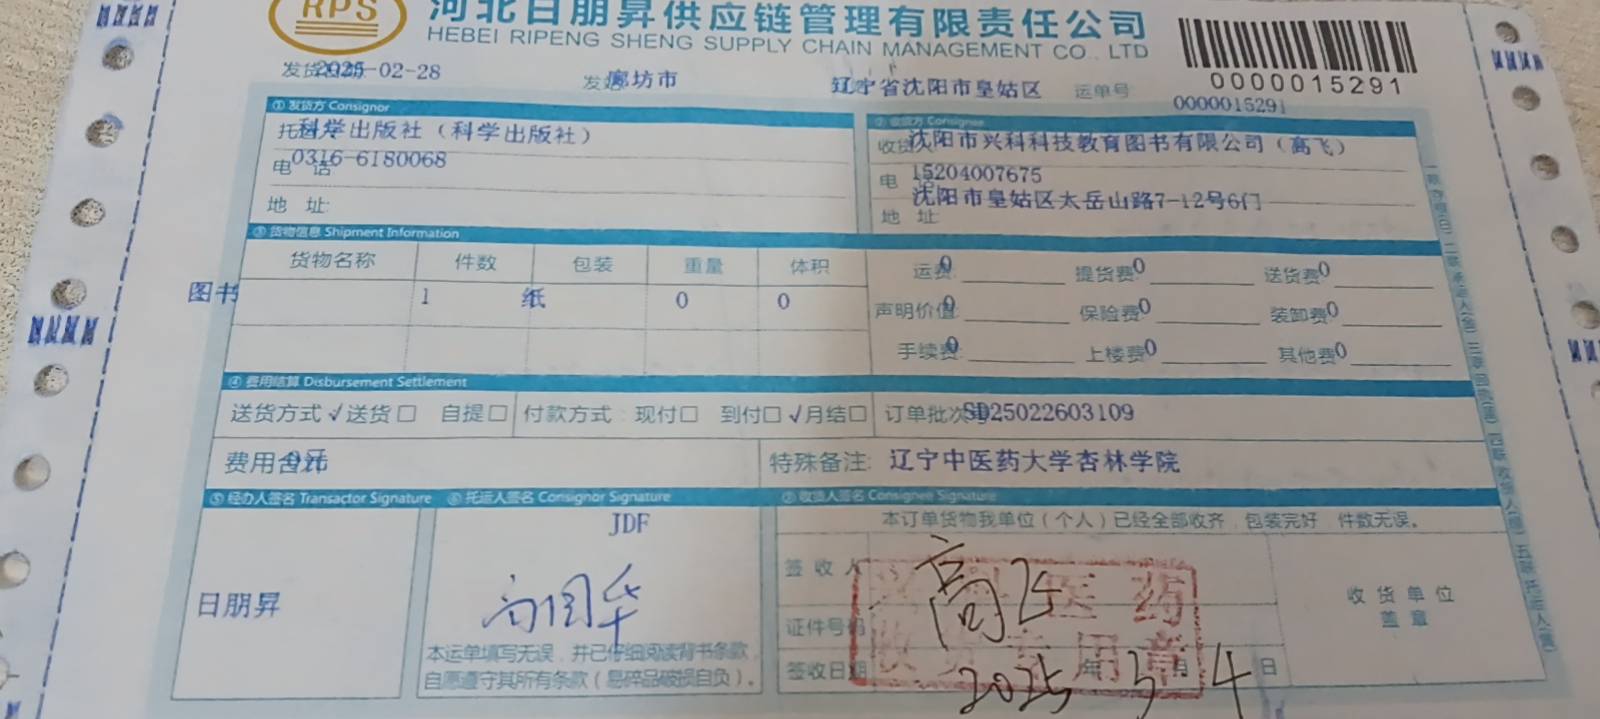 RPS
河北日朋昇供应链管理有限责任公司
HEBEI RIPENG SHENG SUPPLY CHAIN MANAGEMENT CO., LTD
0000015291
2025-02-28 廊坊市 辽宁省沈阳市皇姑区 运单号 0000015291
① 发货方 Consignor ② 收货方 Consignee
科学出版社（科学出版社） 沈阳市兴科科技教育图书有限公司（高飞）
电 话 0316-6180068 电 15204007675
地 址: 地 址 沈阳市皇姑区太岳山路7-12号6门
③ 货物信息 Shipment Information
货物名称 件数 包装 重量 体积 运费 0 提货费 0 送货费 0
图书 1 纸 0 0 声明价值 0 保险费 0 装卸费 0
手续费 0 上楼费 0 其他费 0
④ 费用结算 Disbursement Settlement
送货方式 √送货□ 自提□ 付款方式: 现付□ 到付□ √月结□ 订单批次号 SD25022603109
费用合计 特殊备注: 辽宁中医药大学杏林学院
⑤ 经办人签名 Transactor Signature ⑥ 托运人签名 Consignor Signature ⑦ 收货人签名 Consignee Signature
JDF 本订单货物我单位（个人）已经全部收齐，包装完好 件数无误。
签 收 人 高飞
日朋昇 收 货 单 位
盖 章
证件号码
本运单填写无误，并已仔细阅读背书条款，
自愿遵守其所有条款（易碎品破损自负）。
签收日期 2025 年 3 月 4 日